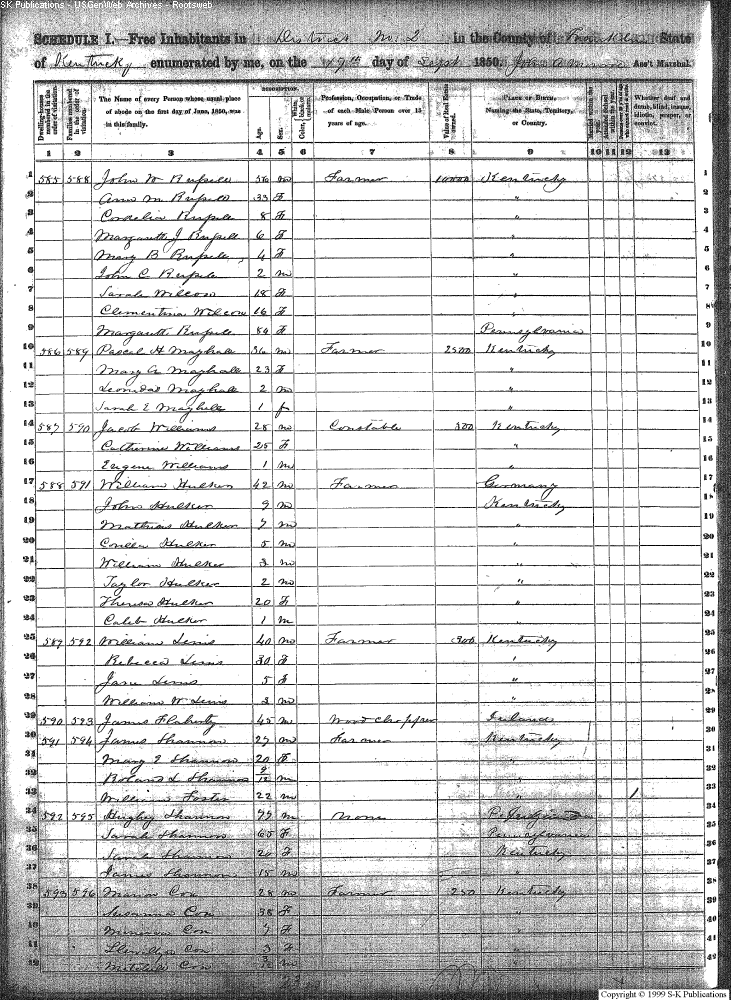 S-K Publications - USGenWeb Archives - Rootsweb
SCHEDULE I.—Free Inhabitants in District No. 2 in the County of Franklin State
of Kentucky enumerated by me, on the day of Sept 1850. Ass't Marshal.
Dwelling-houses numbered in the order of visitation.
Families numbered in the order of visitation.
The Name of every Person whose usual place of abode on the first day of June, 1850, was in this family.
DESCRIPTION.
Age.
Sex.
Color, White, black, or mulatto.
Profession, Occupation, or Trade of each Male Person over 15 years of age.
Value of Real Estate owned.
PLACE OF BIRTH, Naming the State, Territory, or Country.
Whether deaf and dumb, blind, insane, idiotic, pauper, or convict.
1 2 3 4 5 6 7 8 9 10 11 12 13
1 585 588 John W Russell 56 m Farmer 10000 Kentucky 1
2 Ann M Russell 33 F " 2
3 Cordelia Russell 8 F " 3
4 Margarett J Russell 6 F " 4
5 Mary B Russell 4 F " 5
6 John C Russell 2 m " 6
7 Sarah Wilcox 18 F " 7
8 Clementina Wilcox 16 F " 8
9 Margarett Russell 84 F Pennsylvania 9
10 586 589 Pascal H Maghall 36 m Farmer 2500 Kentucky 10
11 Mary A Maghall 23 F " 11
12 Leonidas Maghall 2 m " 12
13 Sarah E Maghall 1 f " 13
14 587 590 Jacob Williams 28 m Constable 300 Kentucky 14
15 Catherine Williams 25 F " 15
16 Eugene Williams 1 m " 16
17 588 591 William Hulker 42 m Farmer Germany 17
18 John Hulker 9 m Kentucky 18
19 Mathias Hulker 7 m " 19
20 Hulker 5 m " 20
21 William Hulker 3 m " 21
22 Taylor Hulker 2 m " 22
23 Theresa Hulker 20 F " 23
24 Caleb Hulker 1 m " 24
25 589 592 William Lewis 40 m Farmer 300 Kentucky 25
26 Rebecca Lewis 30 F " 26
27 Jane Lewis 5 F " 27
28 William W Lewis 3 m " 28
29 590 593 James Flaherty 45 m Wood chopper Ireland 29
30 591 594 James Shannon 29 m Farmer Kentucky 30
31 Mary E Shannon 20 F " 31
32 Roland L Shannon 9/12 m " 32
33 William Foster 22 m " 1
34 592 595 Hughey Shannon 79 m None 34
35 Sarah Shannon 65 F Pennsylvania 35
36 Sarah Shannon 20 F Kentucky 36
37 James Shannon 15 m 37
38 593 596 Cox 28 m Farmer 250 Kentucky 38
39 Susanna Cox 38 F " 39
40 Minerva Cox 7 F " 40
41 Llewellyn Cox 3 F " 41
42 Mitchell Cox m " 42
Copyright © 1999 S-K Publications